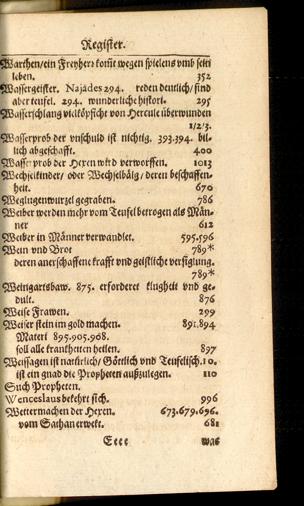 Register.
Warthen/ein Freyherr kom̃t wegen spielens vmb sein
leben. 352
Wassergeister. Najades 294. reden deutlich/sind
aber teufel. 294. wunderliche histori. 295
Wasserschlang vielköpficht von Hercule überwunden
1/2/3.
Wasserprob der vnschuld ist nichtig. 393.394. bil-
lich abgeschafft. 400
Wasserprob der Hexen wird verworffen. 1013
Wechselkinder/ oder Wechselbälg/ deren beschaffen-
heit. 670
Weglugenwurzel gegraben. 786
Weiber werden mehr vom Teufel betrogen als Män-
ner 612
Weiber in Männer verwandlet. 595.596
Wein vnd Brot 789*
deren anerschaffene krafft vnd geistliche verfiglung.
789*
Weingartsbaw. 875. erforderet klugheit vnd ge-
dult. 876
Weise Frawen. 299
Weiser stein im gold machen. 891.894
Materi 895.905.908.
soll alle kranckheiten heilen. 897
Weissagen ist natürlich/ Göttlich vnd Teufelisch. 10.
ist ein gnad die Propheten außzulegen. 110
Such Propheten.
Wenceslaus bekehrt sich. 996
Wettermachen der Hexen. 673.679.696.
vom Sathan erwekt. 681
Eeee was